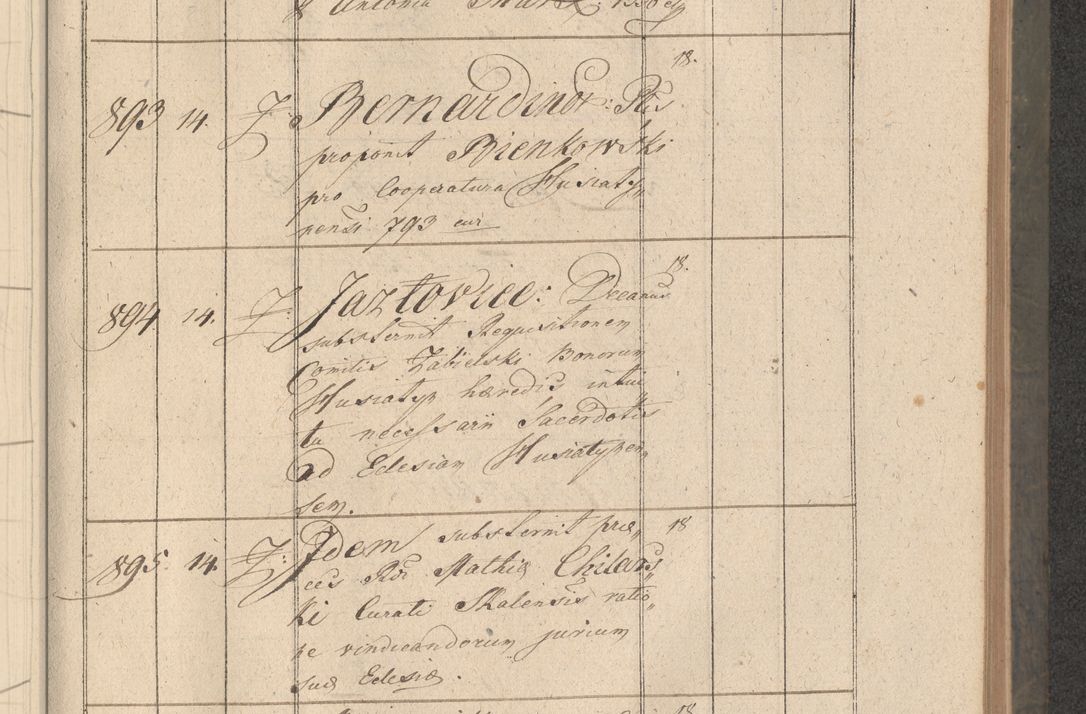 & Antonia
18.
893 14. Z: Bernardinor: Rls
proponit Bienkowski
pro Cooperatura Husiaty„
nensi 793 cur
18.
894. 14. Z: Jazlovice: Decanus
substernit Requisitionem
Comitis Zabielski Bonorum
Husiatyn hæredis intui„
tu necessarii Sacerdotis
ad Eclesiam Husiatynen„
sem.
895. 14. Z: Idem substernit præ„ 18
ces Rdi Mathiæ Chilars„
ki Curati Skalensis ratio„
ne vindicandorum jurium
suæ Eclesiæ.
18